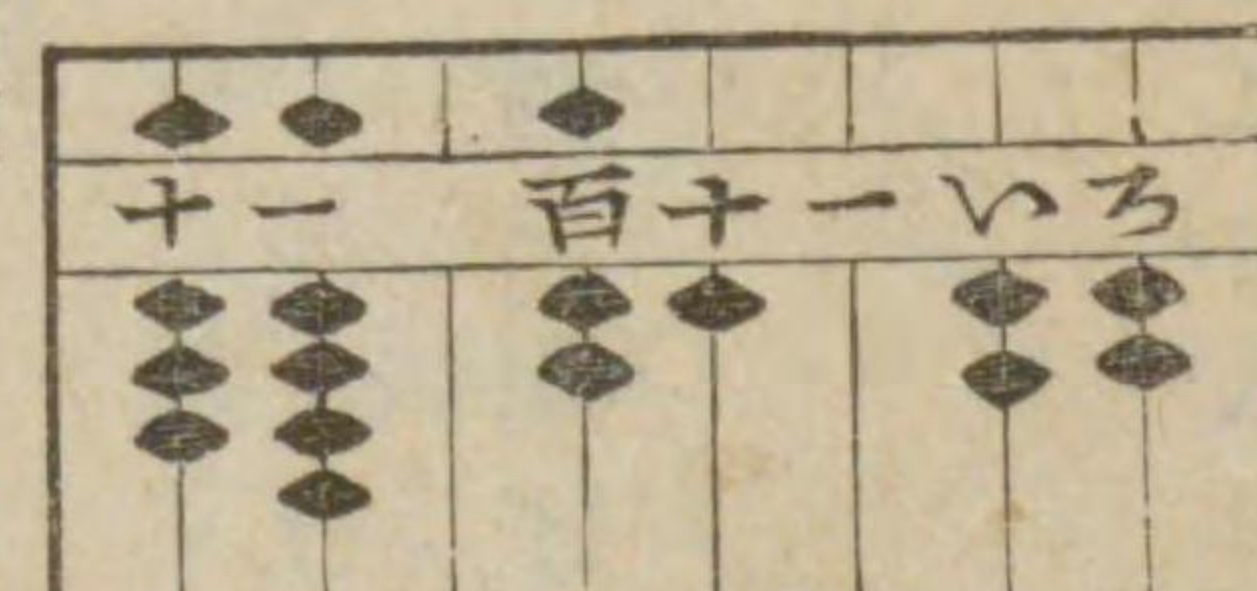 十一 百十一いろ